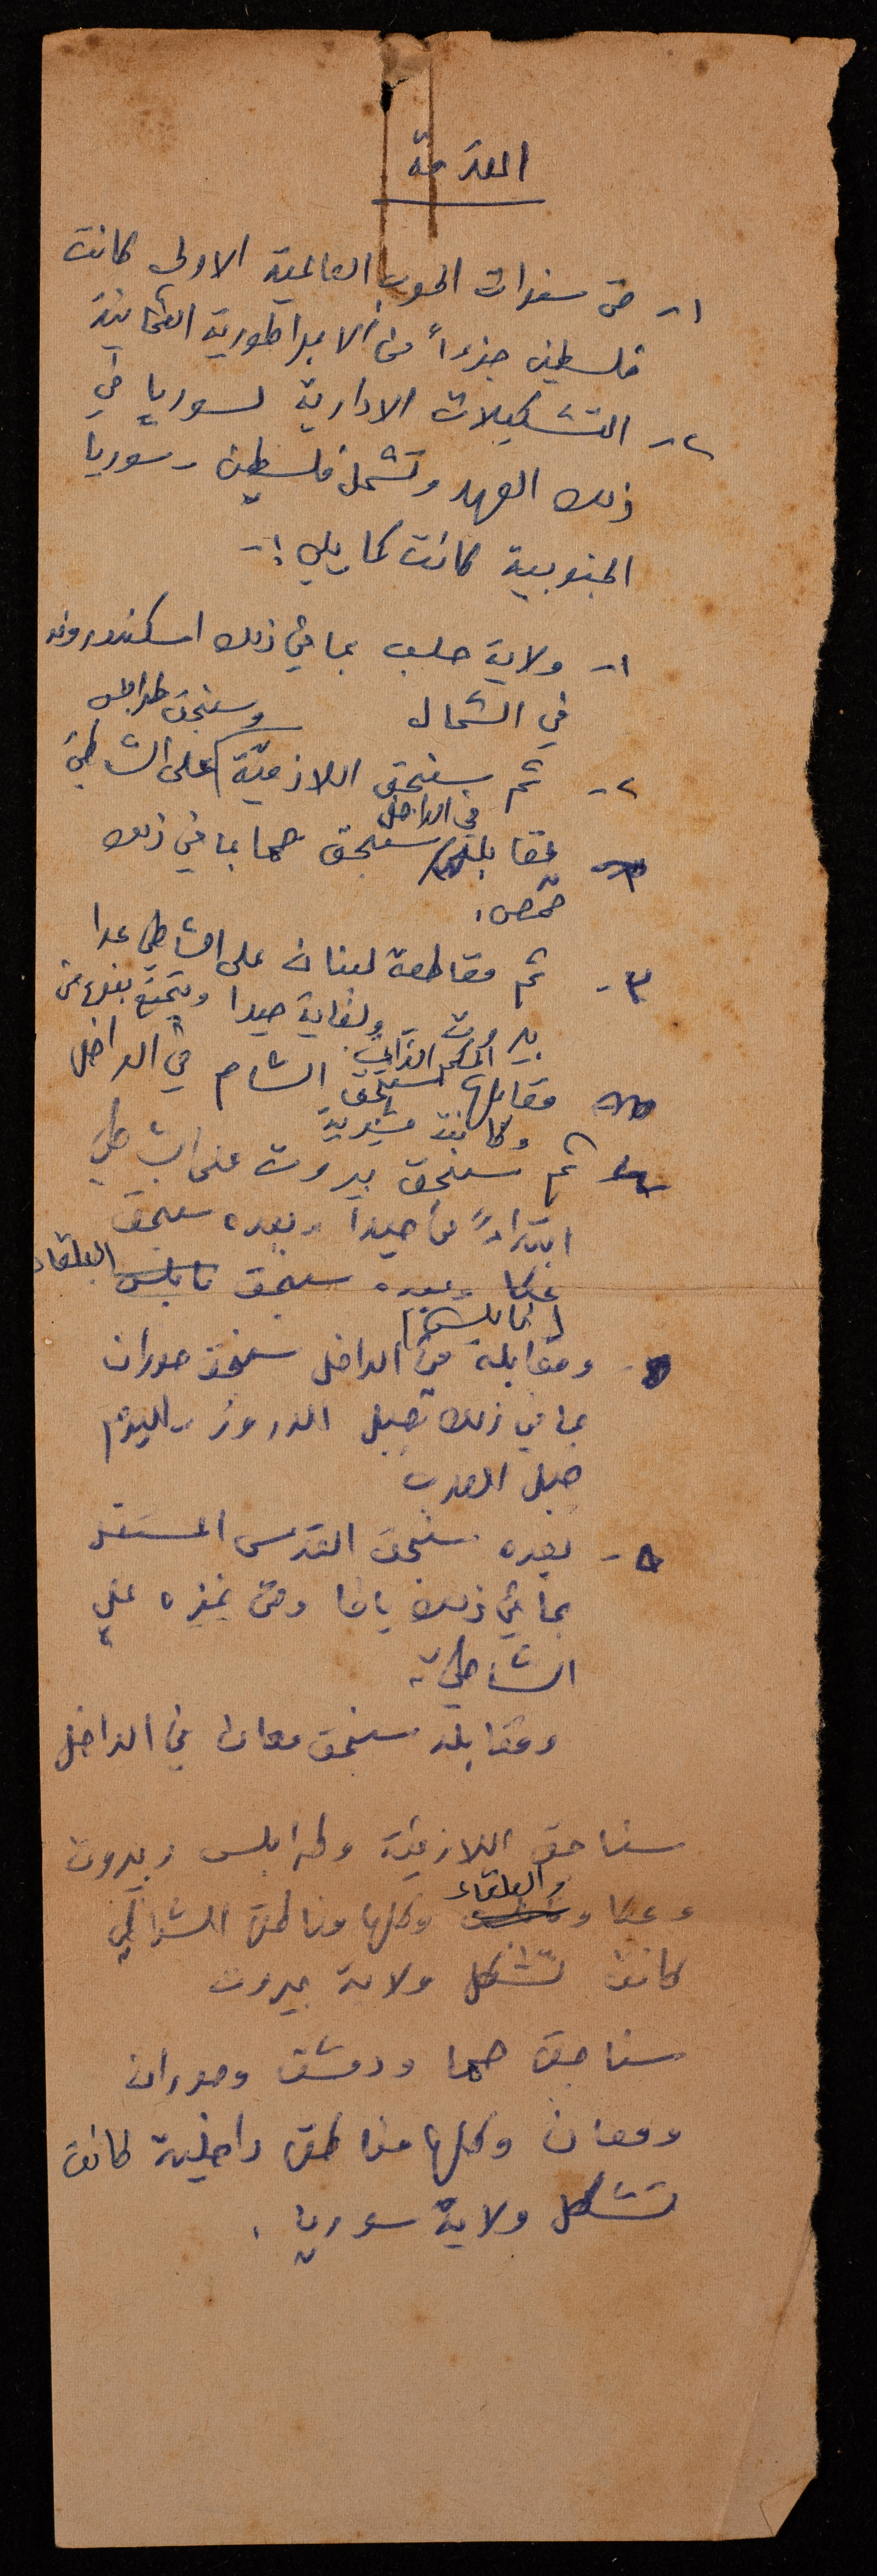 المقدمة
١- في سنوات الحرب العالمية الاولى كانت
فلسطين جزءاً من الامبراطورية العثمانية
٢- التشكيلات الادارية لسوريا في
ذلك العهد وتشمل فلسطين - سوريا
الجنوبية كانت كما يلي :-
١- ولاية حلب بما في ذلك اسكندرونه
في الشمال
وسنجق طرابلس
٢- ثم سنجق اللاذقية على الشاطئ
في الداخل
مقابله سنجق حما بما في ذلك
حمص .
٣- ثم مقاطعة لبنان على الشاطئ عدا
بيروت ولغاية صيدا ويتمتع بنوع من
الحكم الذاتي
مقابلها سنجق الشام في الداخل
وكانت
٤- ثم سنجق بيروت على الشاطئ
ابتداءً من صيدا وبعده سنجق
عكا وبعده سنجق نابلس البلقاء
(نابلس)
ومقابله في الداخل سنجق حوران
بما في ذلك جبل الدروز - اليوم
جبل العرب
٥- بعده سنجق القدس المستقل
بما في ذلك يافا وفي غزه على
الشاطئ
ومقابله سنجق معان في الداخل
سناجق اللاذقية وطرابلس وبيروت
والبلقاء
وعكا وكلها مناطق الشواطئ
كانت تشكل ولاية بيروت
سناجق حما ودمشق وحوران
ومعان وكلها مناطق داخلية كانت
تشكل ولاية سوريا .